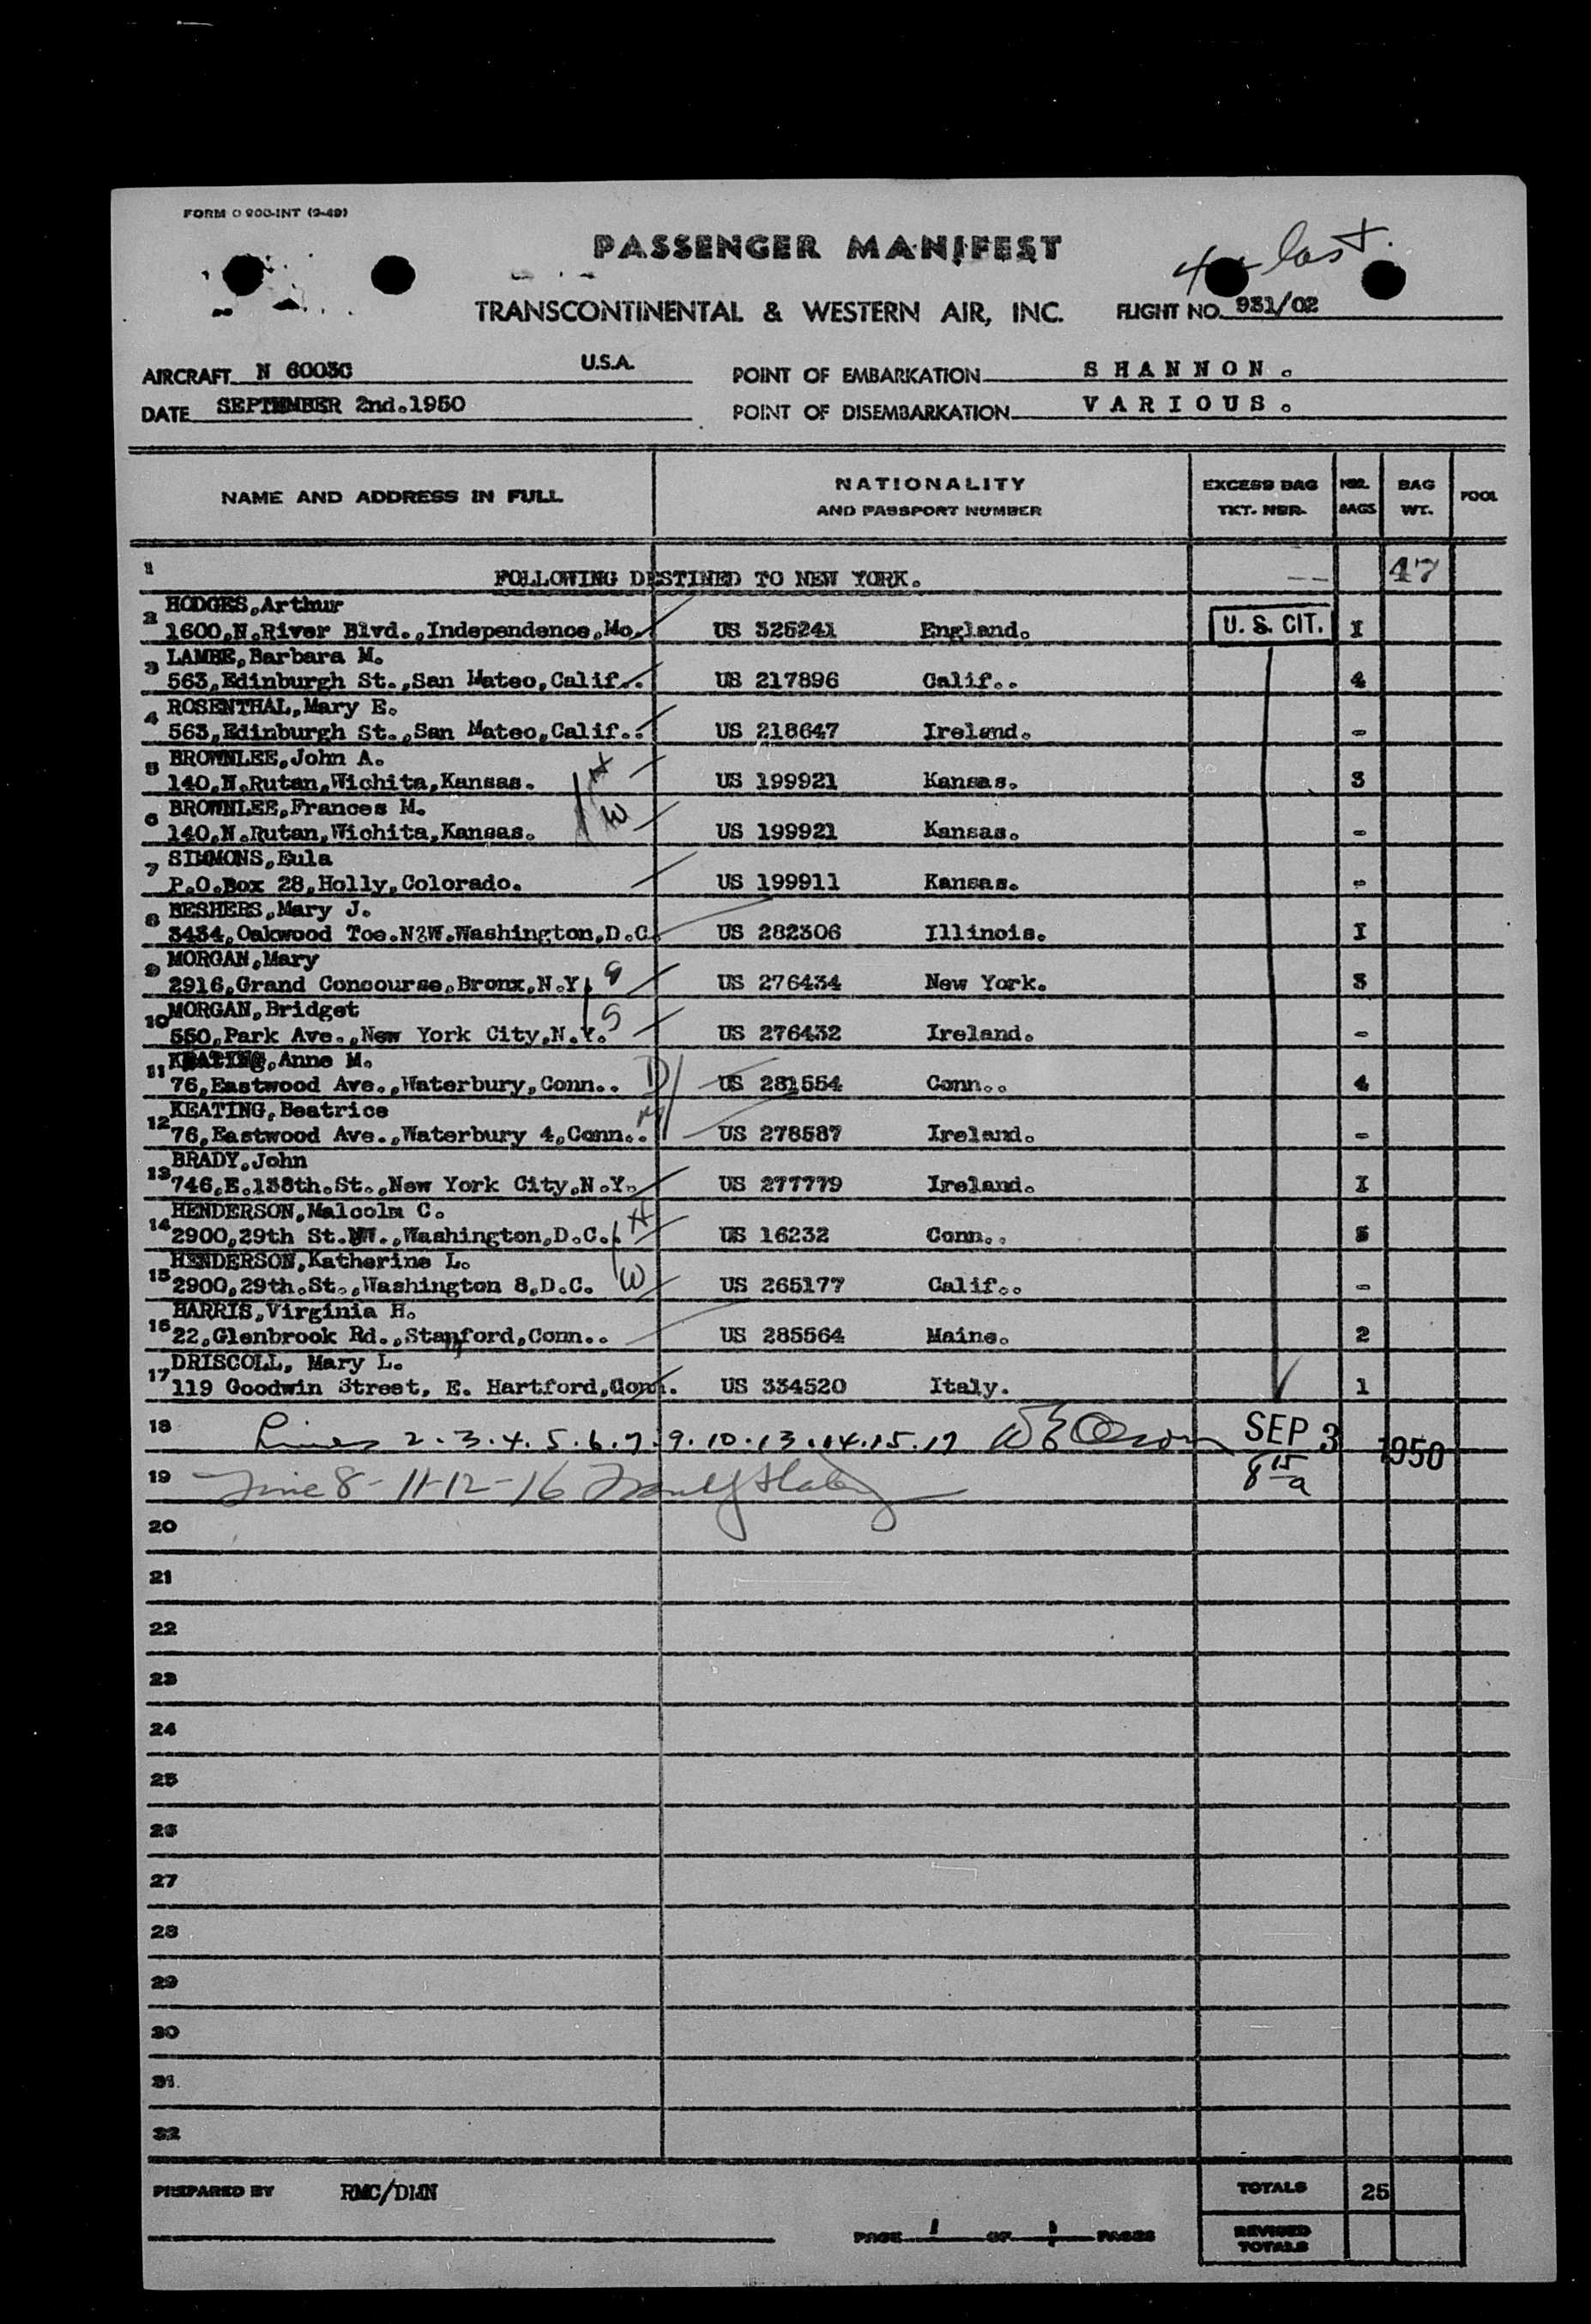 FORM O 900-INT (9-49)
PASSENGER MANIFEST
last.
TRANSCONTINENTAL & WESTERN AIR, INC.
FLIGHT NO. 931/02
AIRCRAFT N 6003C U.S.A.
POINT OF EMBARKATION SHANNON.
DATE SEPTEMBER 2nd.1950
POINT OF DISEMBARKATION VARIOUS.
NAME AND ADDRESS IN FULL
NATIONALITY
AND PASSPORT NUMBER
EXCESS BAG
TKT. NBR.
NBR.
BAGS
BAG
WT.
POOL
1 FOLLOWING DESTINED TO NEW YORK. -- 47
2 HODGES,Arthur
1600,N.River Blvd.,Independence,Mo. US 325241 England. U. S. CIT. I
3 LAMBE,Barbara M.
563,Edinburgh St.,San Mateo,Calif.. US 217896 Calif.. 4
4 ROSENTHAL,Mary E.
563,Edinburgh St.,San Mateo,Calif.. US 218647 Ireland. -
5 BROWNLEE,John A. H
140,N.Rutan,Wichita,Kansas. US 199921 Kansas. 3
6 BROWNLEE,Frances M. W
140,N.Rutan,Wichita,Kansas. US 199921 Kansas. -
7 SIMMONS,Eula
P.O.Box 28,Holly,Colorado. US 199911 Kansas. -
8 BESHERS,Mary J.
3434,Oakwood Toe.N?W.Washington,D.C. US 282306 Illinois. I
9 MORGAN,Mary
2916,Grand Concourse,Bronx,N.Y. S US 276434 New York. 3
10 MORGAN,Bridget
550,Park Ave.,New York City,N.Y. S US 276432 Ireland. -
11 KEATING,Anne M.
76,Eastwood Ave.,Waterbury,Conn.. D US 281554 Conn.. 4
12 KEATING,Beatrice
76,Eastwood Ave.,Waterbury 4,Conn.. M US 278587 Ireland. -
13 BRADY,John
746,E.138th.St.,New York City,N.Y. US 277779 Ireland. I
14 HENDERSON,Malcolm C.
2900,29th St.NW.,Washington,D.C.. H US 16232 Conn.. 5
15 HENDERSON,Katherine L.
2900,29th.St.,Washington 8,D.C. W US 265177 Calif.. -
16 HARRIS,Virginia H.
22,Glenbrook Rd.,Stamford,Conn.. US 285564 Maine. 2
17 DRISCOLL, Mary L.
119 Goodwin Street, E. Hartford,Conn. US 334520 Italy. 1
18 Lines 2.3.4.5.6.7.9.10.13.14.15.17 SEP 3 1950
19 Line 8-11-12-16 8 15 a
20
21
22
23
24
25
26
27
28
29
30
31
32
PREPARED BY RMC/DMN
TOTALS 25
PAGE 1 OF 1 PAGES
REVISED
TOTALS